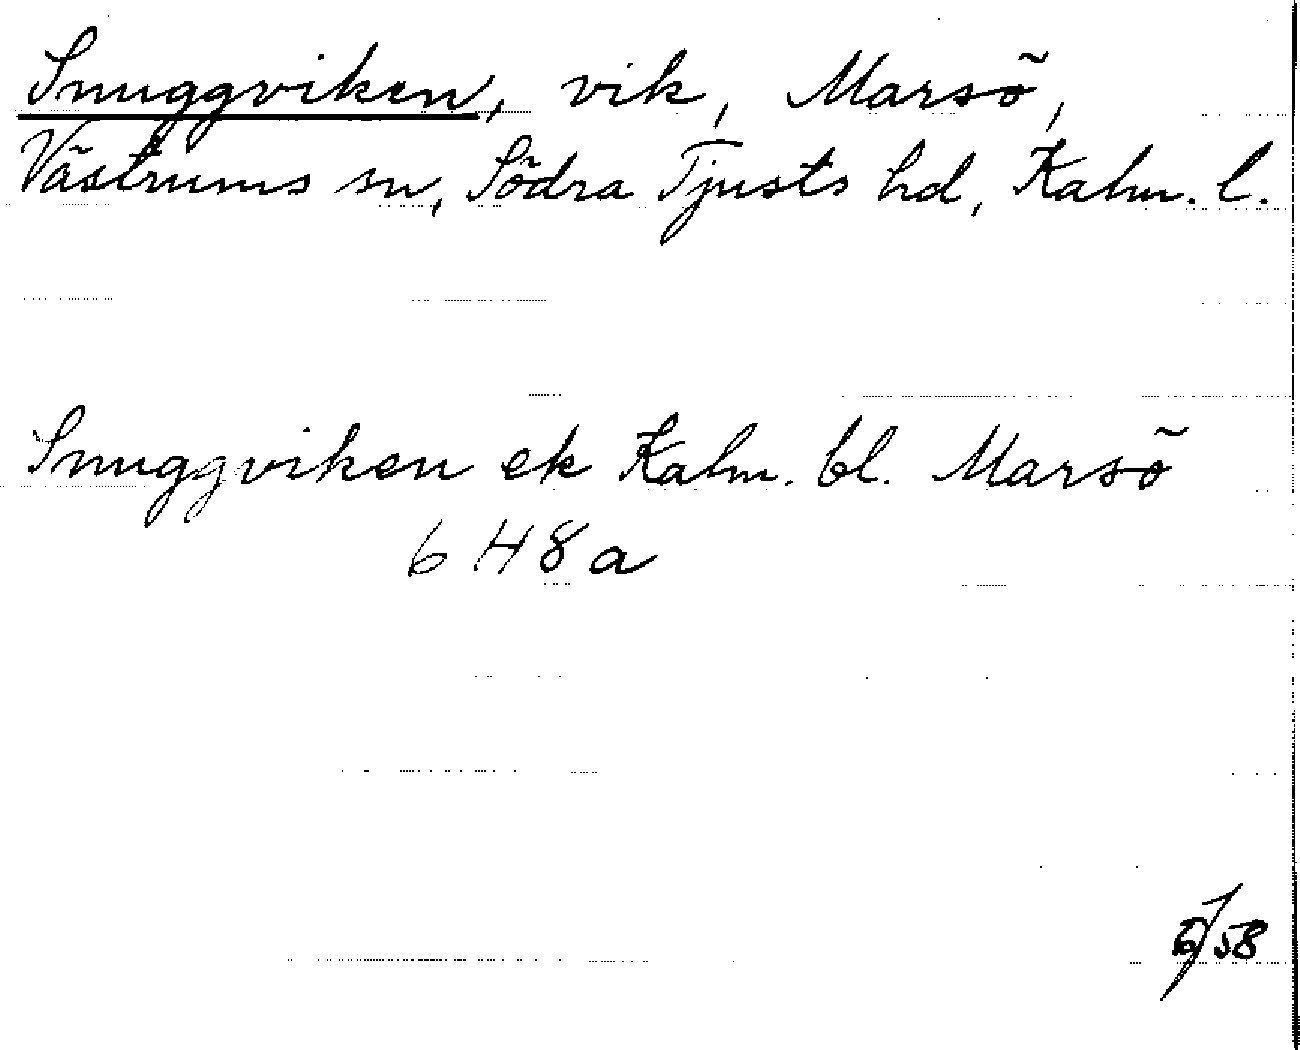 Snuggviken, vik, Marsö,
Västrums sn, Södra Tjusts hd, Kalm. l.
Snuggviken ek Kalm. bl. Marsö
6 H 8 a
/58